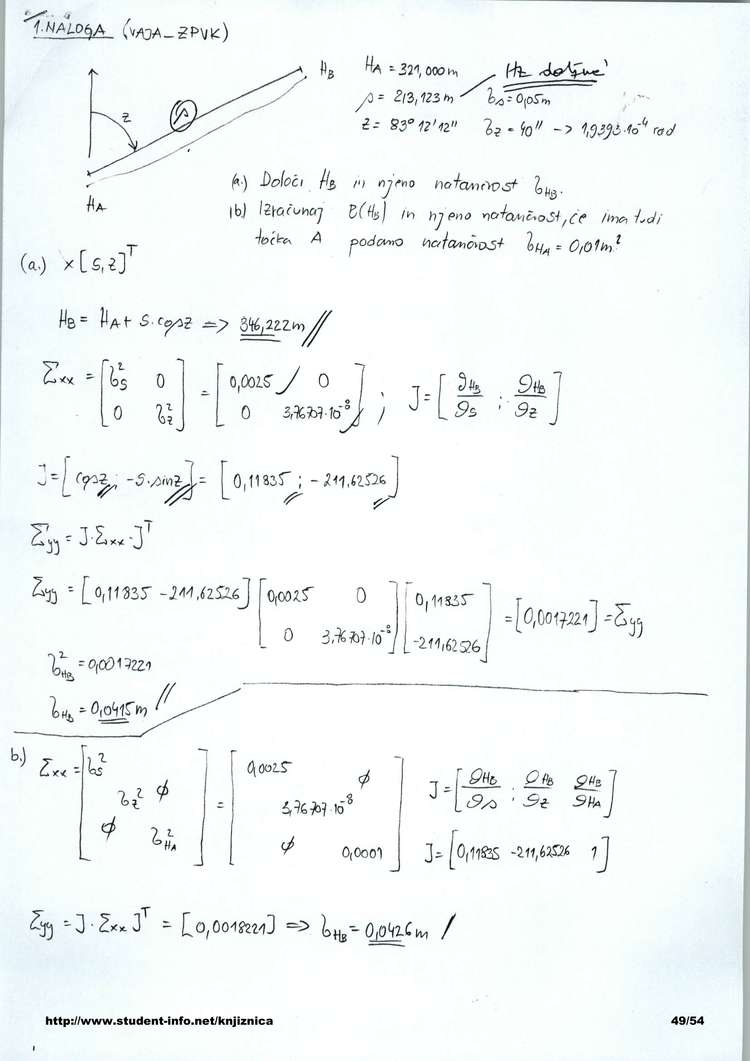 1. NALOGA (VAJA_ZPVK)
z
s
H_B
H_A
H_A = 321,000m
s = 213,123m σ_s = 0,05m
z = 83° 12' 12" σ_z = 40" -> 1,9393·10^-4 rad
(a.) Določi H_B in njeno natančnost σ_HB.
(b) Izračunaj (H_B) in njeno natančnost, če ima tudi
točka A podano natančnost σ_HA = 0,01m²
(a.) x[s,z]^T
H_B = H_A + s.cosz => 346,222m //
Σxx = [σ_s² 0; 0 σ_z²] = [0,0025 0; 0 3,76707·10^-8] ; J = [∂H_B/∂s ; ∂H_B/∂z]
J = [cosz ; -s.sinz] = [0,11835 ; -211,62526]
Σyy = J·Σxx·J^T
Σyy = [0,11835 -211,62526] [0,0025 0; 0 3,76707·10^-8] [0,11835; -211,62526] = [0,0017221] = Σyy
σ²_HB = 0,0017221
σ_HB = 0,0415m //
b.) Σxx = [σ_s² σ_z² φ φ σ²_HA] = [0,0025 φ 3,76707·10^-8 φ 0,0001] J = [∂H_B/∂s ; ∂H_B/∂z ∂H_B/∂H_A]
J = [0,11835 -211,62526 1]
Σyy = J·Σxx J^T = [0,0018221] => σ_HB = 0,0426m /
http://www.student-info.net/knjiznica 49/54